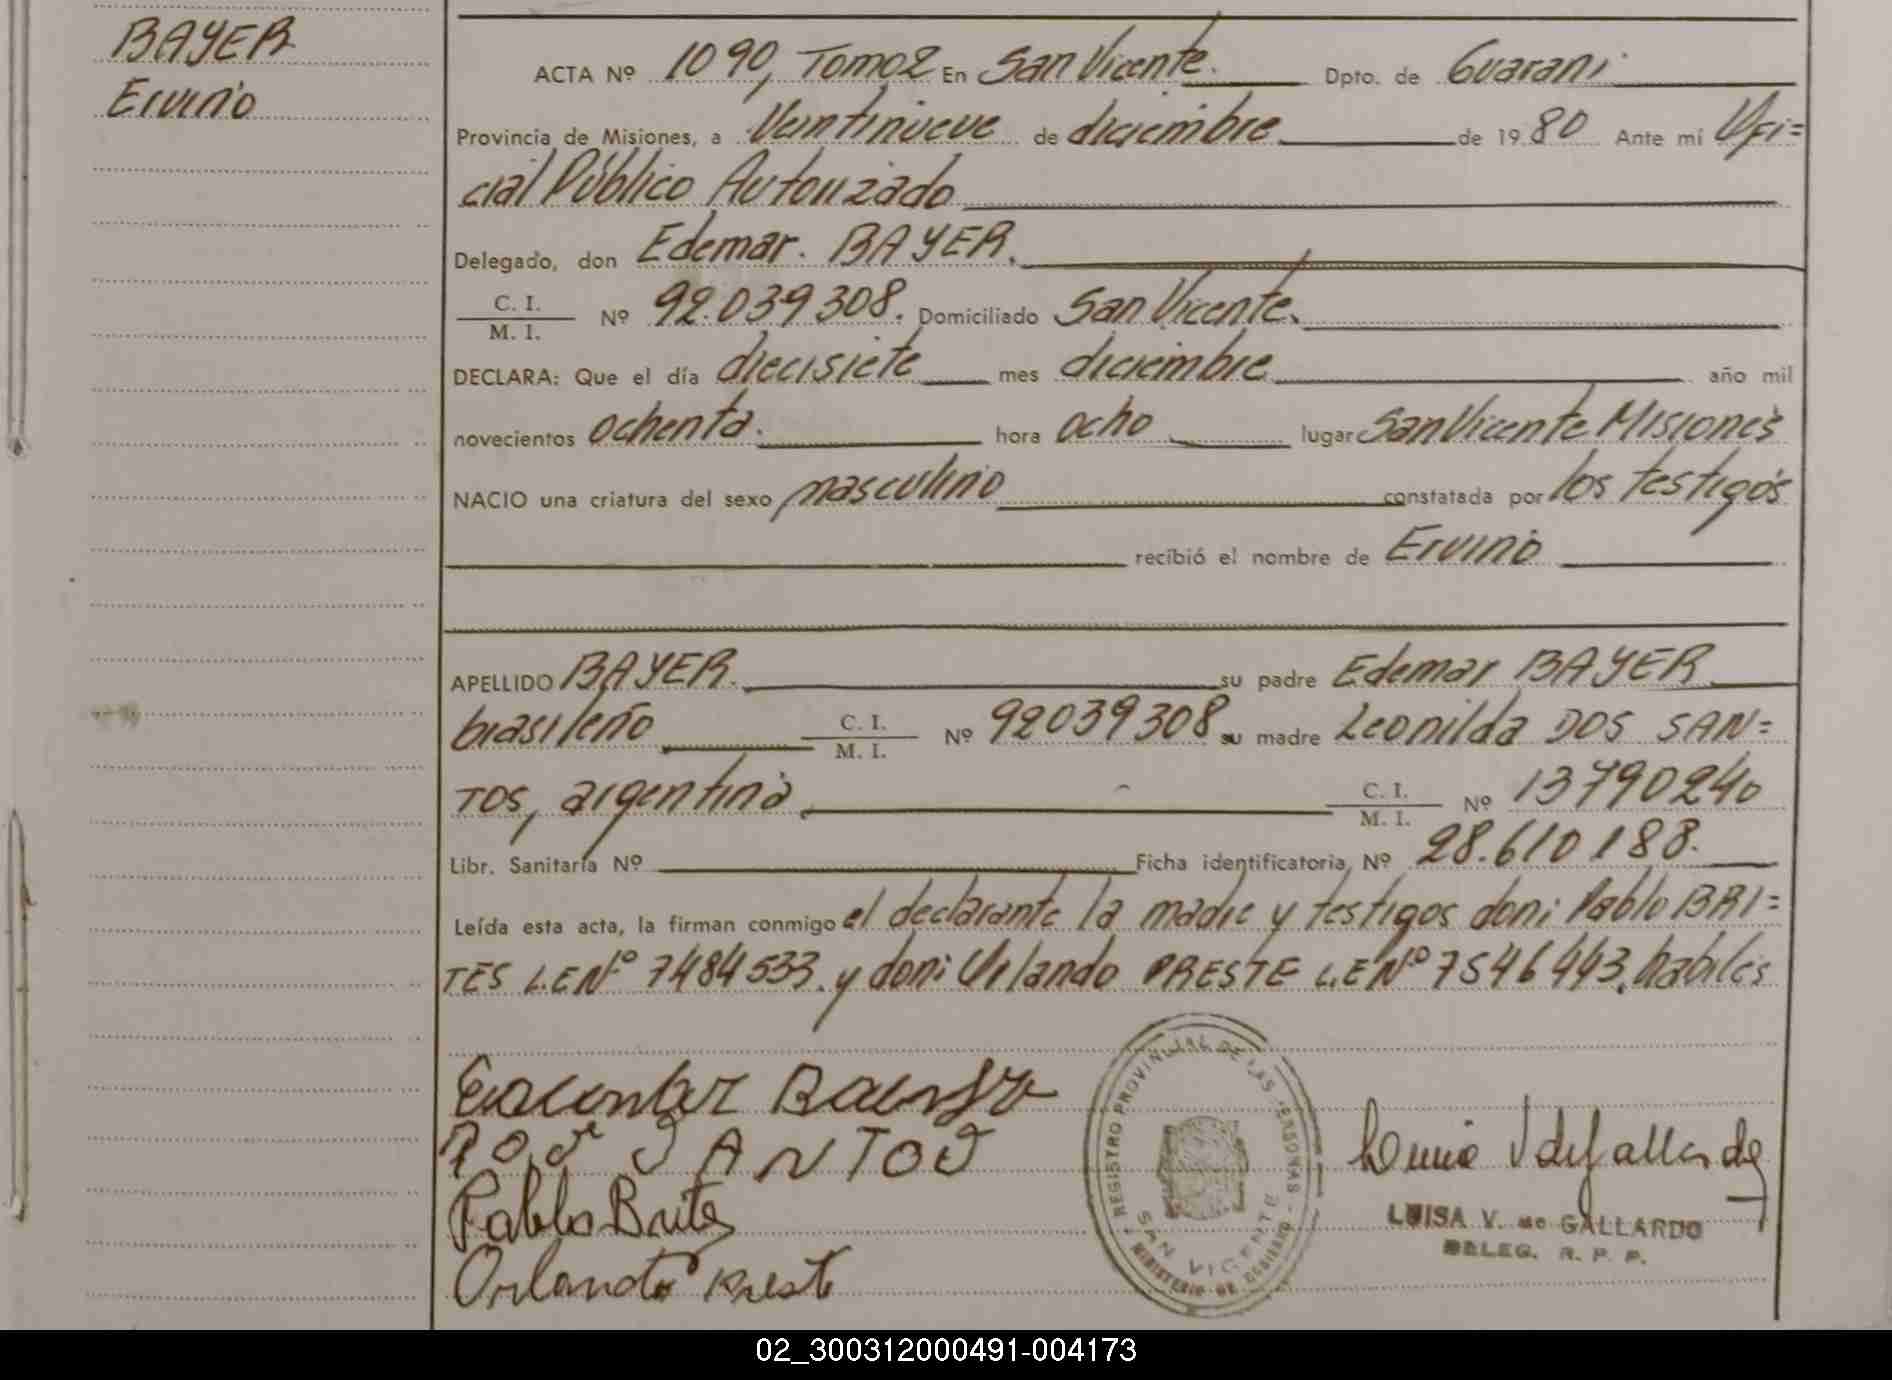 BAYER
Ervino
ACTA Nº 1090, Tomo 2 En San Vicente. Dpto. de Guaraní
Provincia de Misiones, a Veintinueve de diciembre de 1980 Ante mí Ofi=
cial Público Autorizado
Delegado, don Edemar. BAYER.
C. I.
M. I.
Nº 92.039308. Domiciliado San Vicente.
DECLARA: Que el día diecisiete mes diciembre año mil
novecientos ochenta. hora ocho lugar San Vicente Misiones
NACIO una criatura del sexo masculino constatada por los testigos
recibió el nombre de Ervino
APELLIDO BAYER. su padre Edemar BAYER
brasileño C. I. / M. I. Nº 92039308 su madre Leonilda DOS SAN=
TOS, argentina C. I. / M. I. Nº 13790240
Libr. Sanitaria Nº Ficha identificatoria, Nº 28.610188.
Leída esta acta, la firman conmigo el declarante la madre y testigos don: Pablo BRI=
TES L.E Nº 7484533. y don: Orlando PRESTE L.E Nº 7546443. habiles
DOS SANTOS
Pablo Brites
Orlando Preste
REGISTRO PROVINCIAL DE LAS PERSONAS
SAN VICENTE
MINISTERIO DE GOBIERNO
LUISA V. DE GALLARDO
DELEG. R. P. P.
02_300312000491-004173